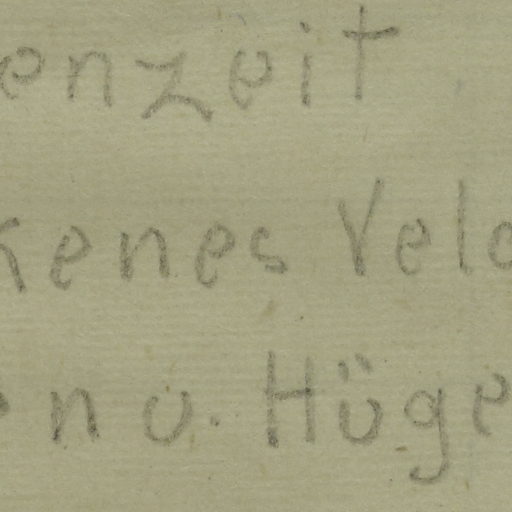 enzeit
kenes Velo
n u. Hüge